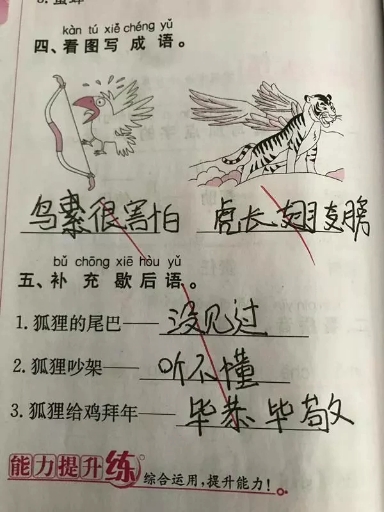 kàn tú xiě chéng yǔ
四、看图写成语。
鸟素很害怕 虎长翅膀
bǔ chōng xiē hòu yǔ
五、补充歇后语。
1. 狐狸的尾巴——没见过
2. 狐狸吵架——听不懂
3. 狐狸给鸡拜年——毕恭毕敬
能力提升练 综合运用,提升能力!